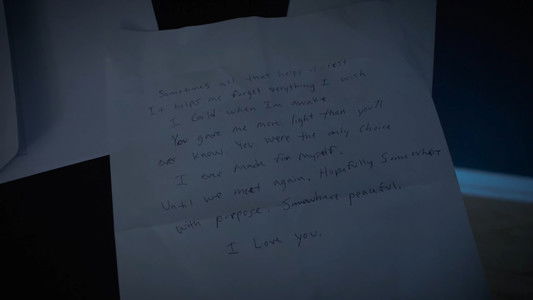 Sometimes all that helps is rest
It helps me forget everything I wish
I Could when Im awake
You gave me more light than you'll
ever know. You were the only choice
I ever Made for Myself.
Until we meet again. Hopefully Somewhere
with purpose. Somewhere peaceful.
I Love you.